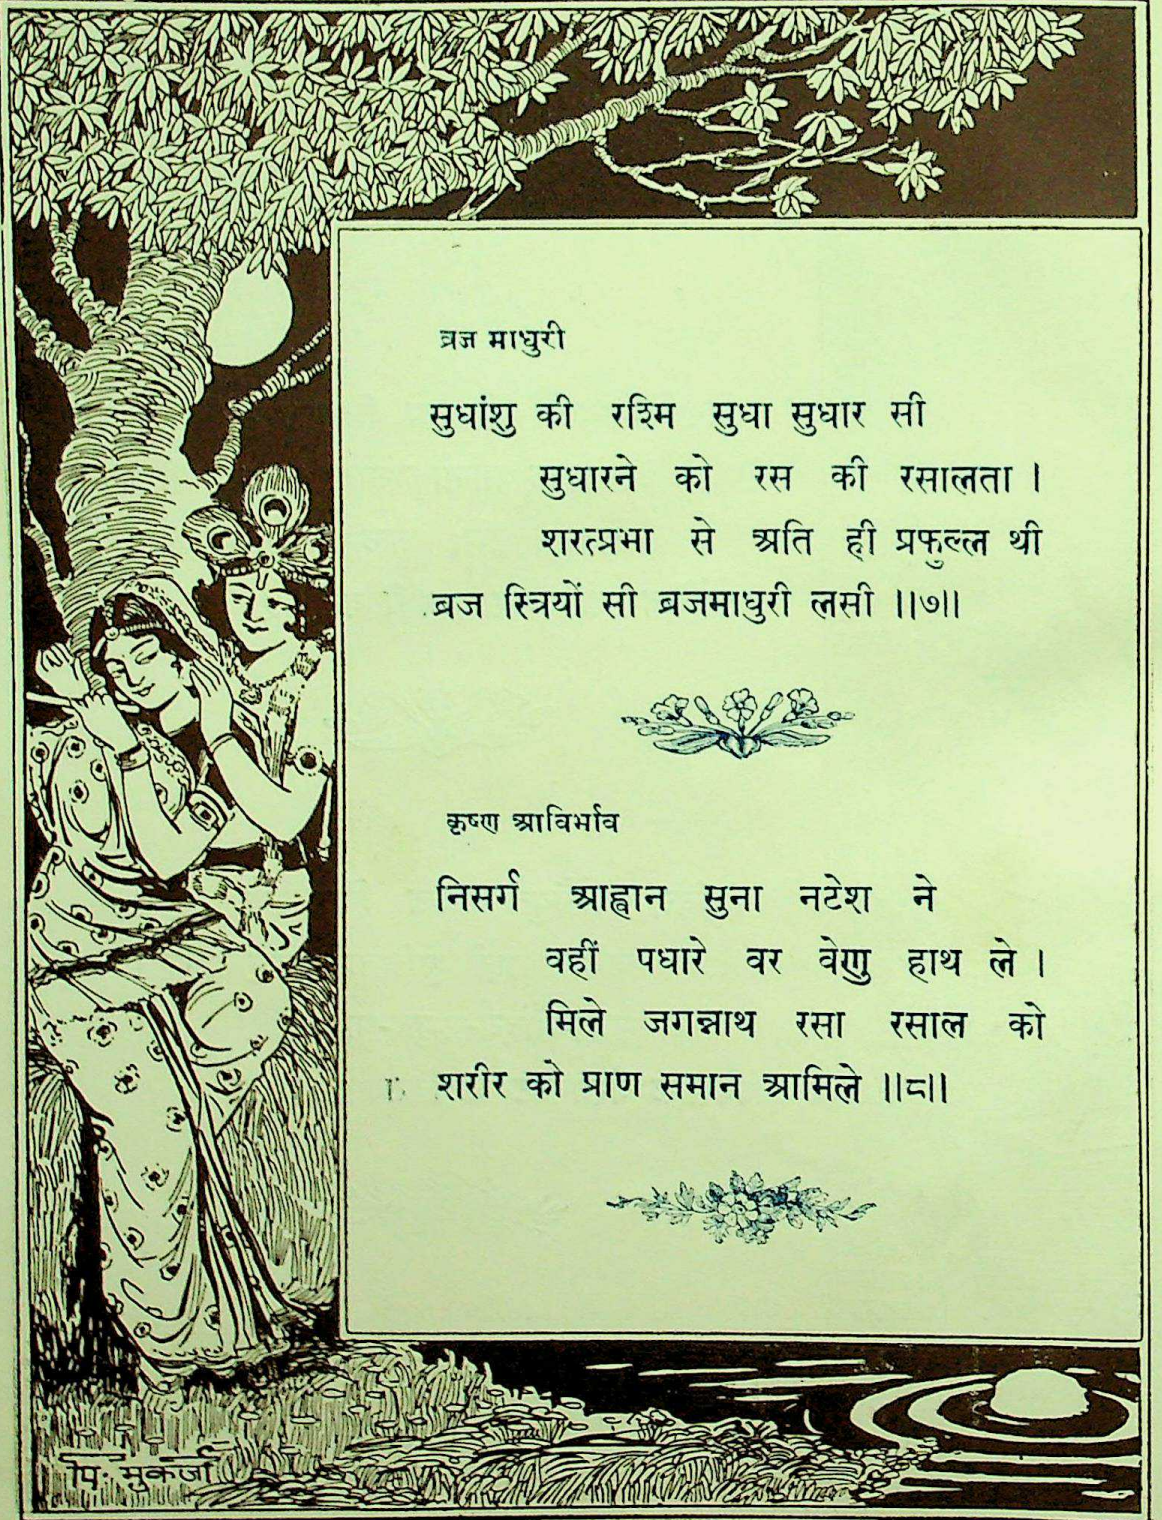 ब्रज माधुरी
सुधांशु की रश्मि सुधा सुधार सी
सुधारने को रस की रसालता ।
शरत्प्रभा से अति ही प्रफुल्ल थी
ब्रज स्त्रियों सी ब्रजमाधुरी लसी ।।७।।
कृष्ण आविर्भाव
निसर्ग आह्वान सुना नटेश ने
वहीं पधारे वर वेणु हाथ ले ।
मिले जगन्नाथ रसा रसाल को
शरीर को प्राण समान आमिले ।।८।।
पि. मुकर्जी